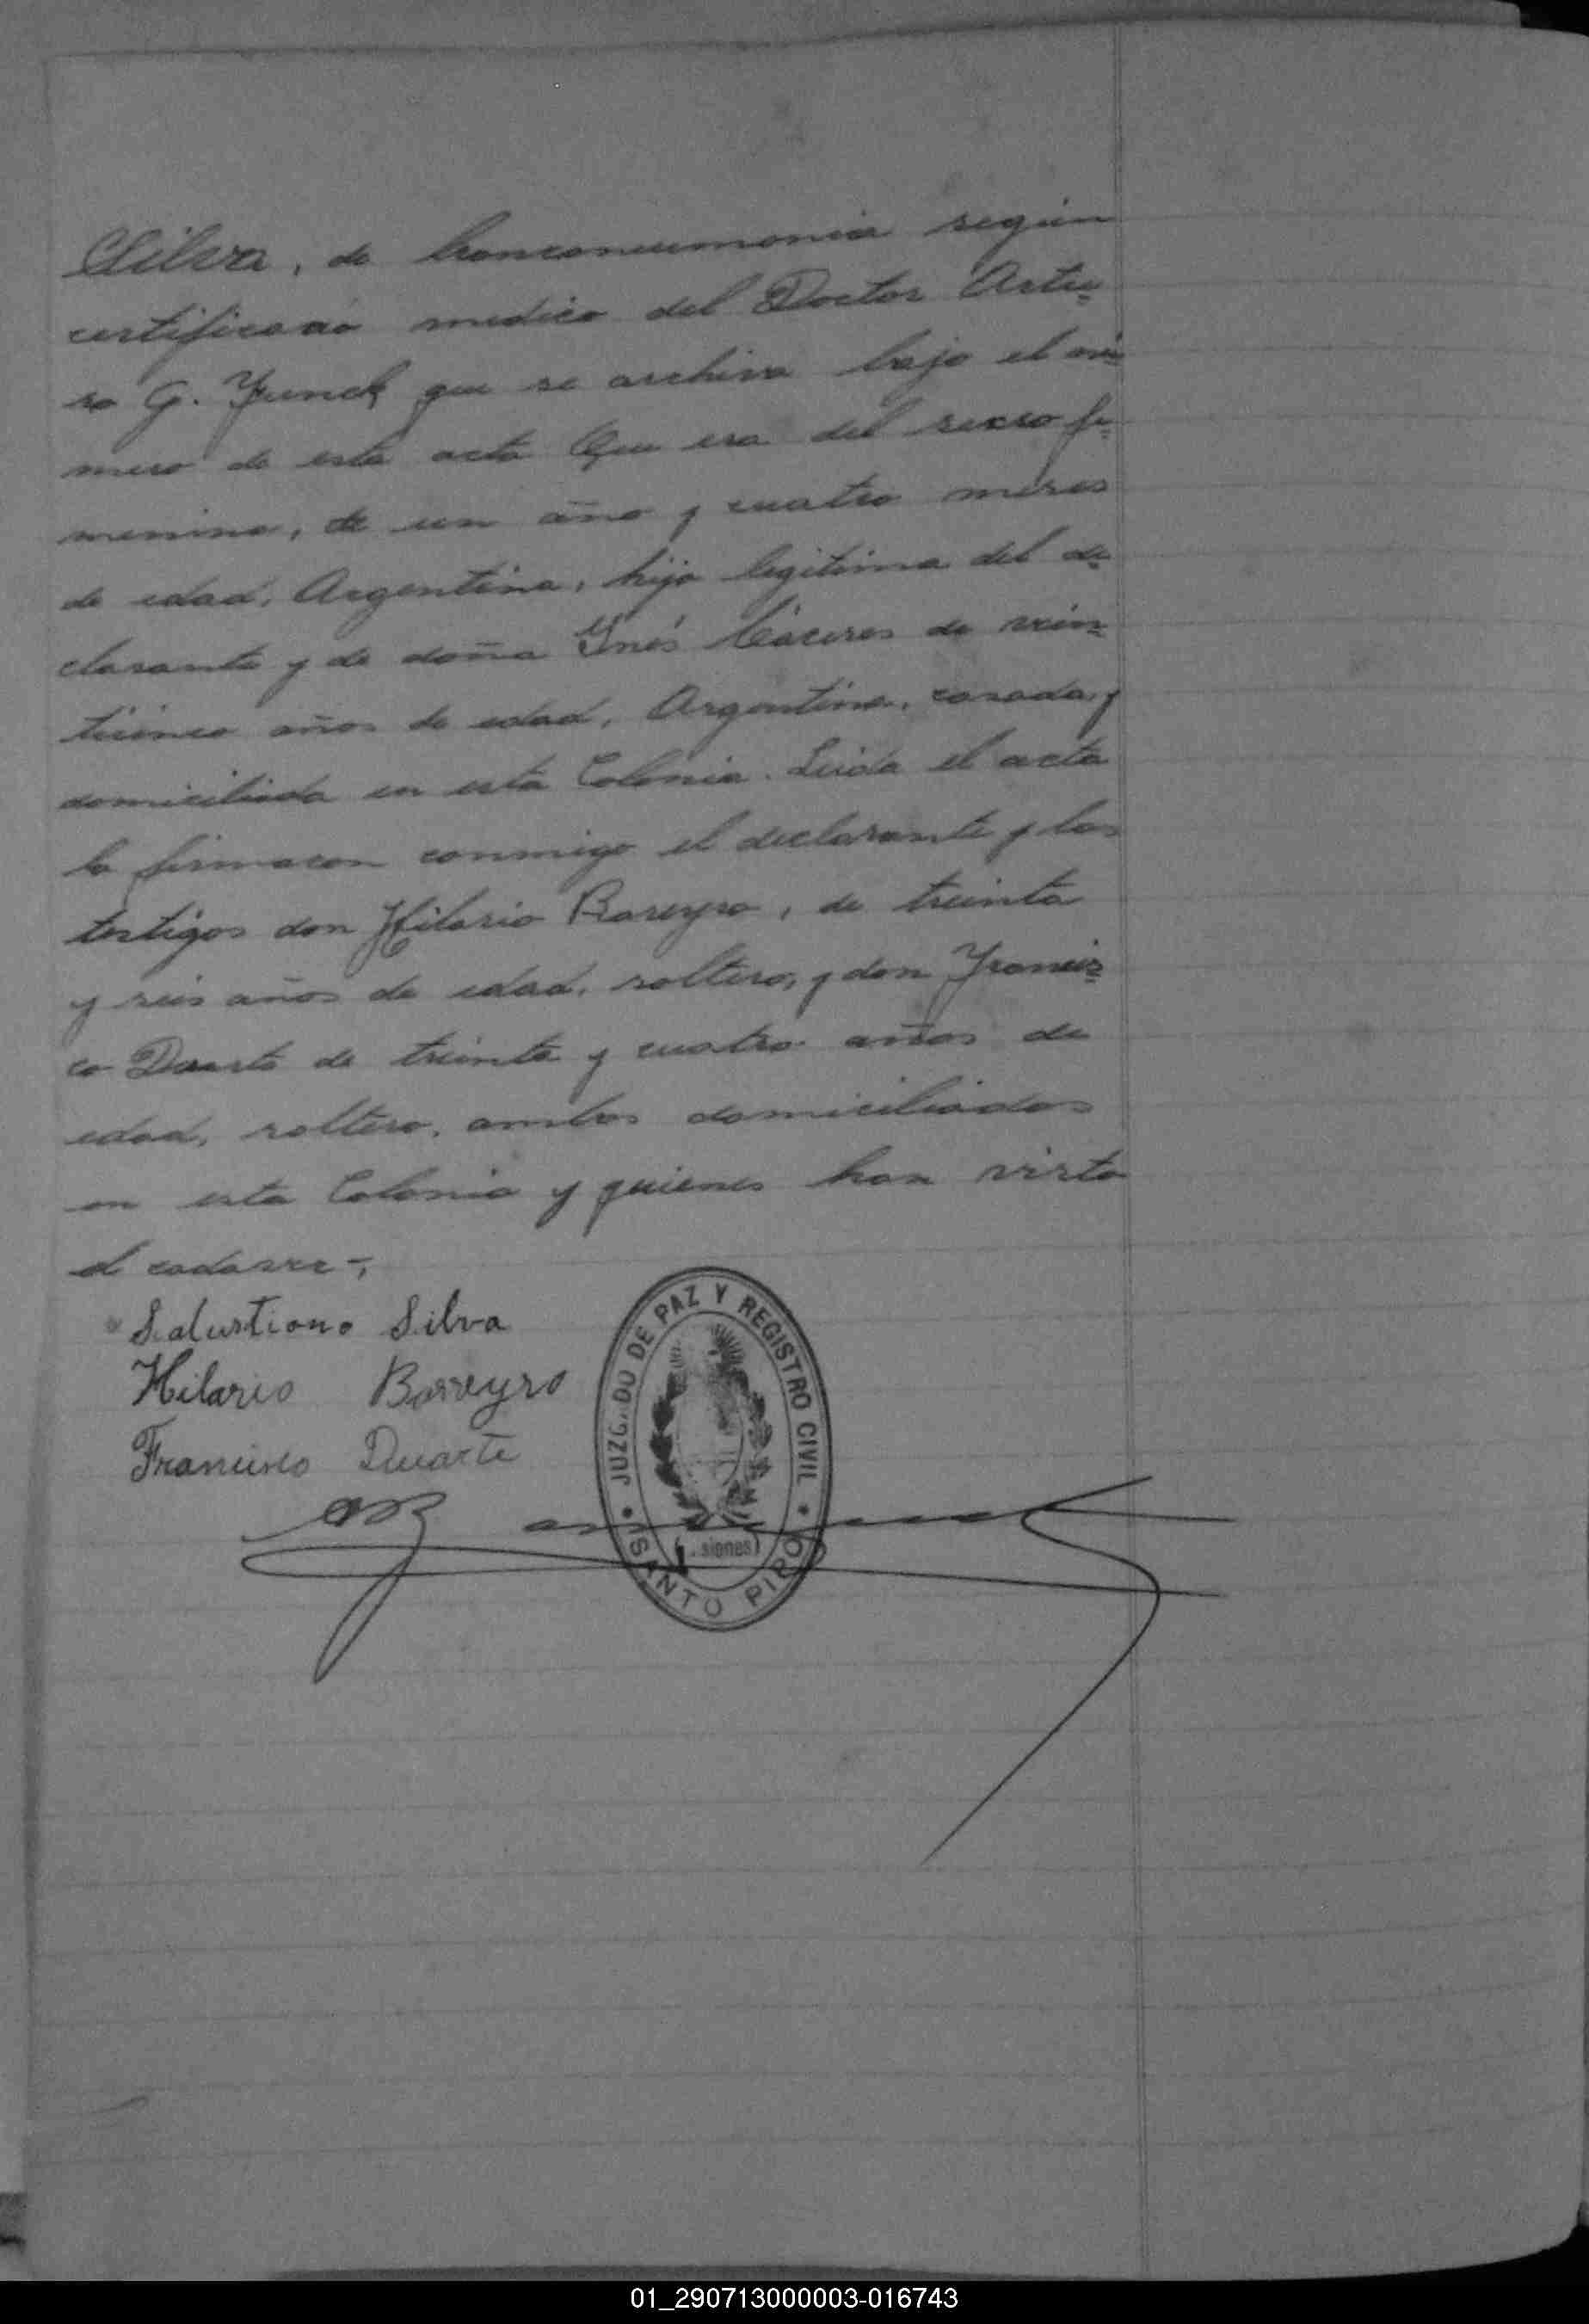 Silva, de bronconeumonia según
certificado medico del Doctor Artu=
ro G. Yunck que se archiva bajo el nú=
mero de esta acta Que era del sexso fe=
menino, de un año y cuatro meses
de edad, Argentina, hija legitima del de=
clarante y de doña Ynés Cáceres de vein=
ticinco años de edad, Argentina, casada, y
domiciliada en esta Colonia. Leida el acta
la firmaron conmigo el declarante y los
testigos don Hilario Bareyro, de treinta
y seis años de edad, soltero, y don Francis=
co Duarte de treinta y cuatro años de
edad, soltero, ambos domiciliados
en esta Colonia y quienes han visto
el cadaver-,
Salustiano Silva
Hilario Barreyro
Francisco Duarte
JUZG. DO DE PAZ Y REGISTRO CIVIL
siones)
SANTO PIPO
01_290713000003-016743